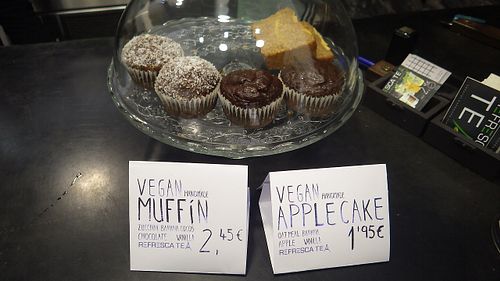 VEGAN HANDMADE
MUFFíN
ZUCCHINI BANANA COCOS
CHOCOLATE VANILLA
REFRESCA TEÁ
2,45€
VEGAN HANDMADE
APPLECAKE
OATMEAL BANANA
APPLE VANILLA
REFRESCA TEÁ
1'95€
ESCATE
REFRESCA
TE